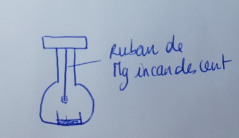 Ruban de
Mg incandescent